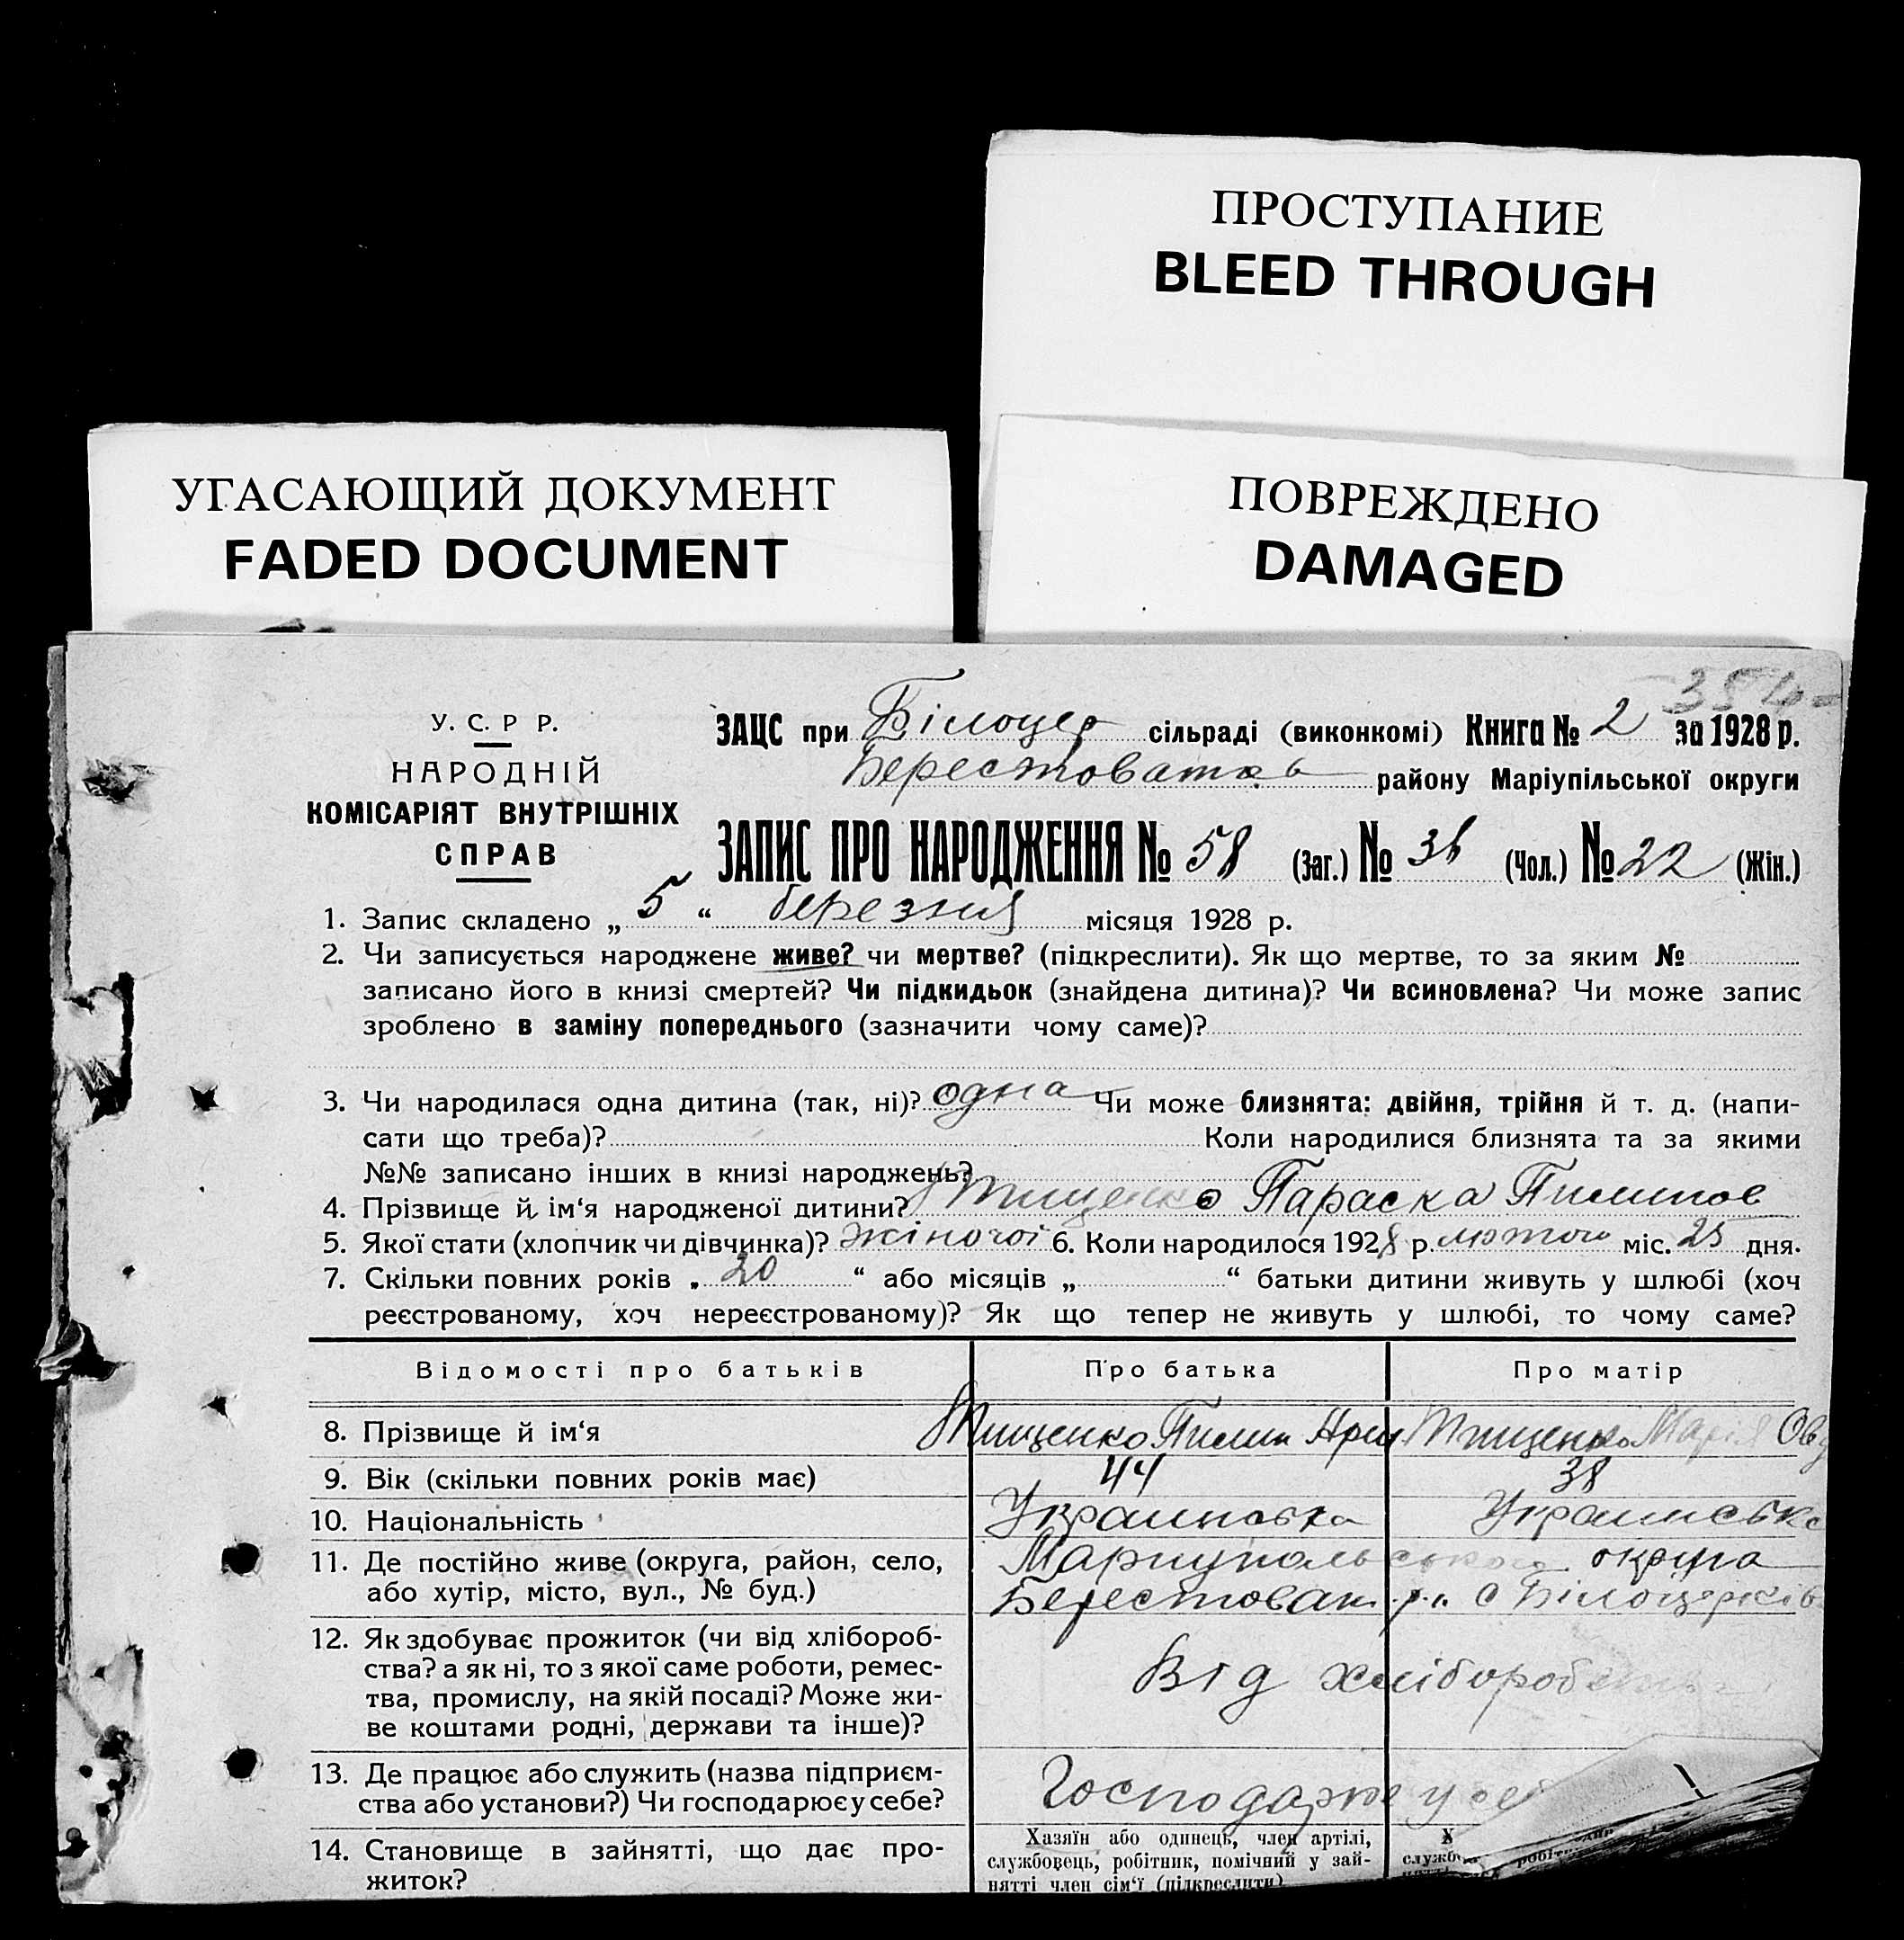 ПРОСТУПАНИЕ
BLEED THROUGH
УГАСАЮЩИЙ ДОКУМЕНТ
FADED DOCUMENT
ПОВРЕЖДЕНО
DAMAGED
У. С. Р Р.
НАРОДНІЙ
КОМІСАРІЯТ ВНУТРІШНІХ
СПРАВ
ЗАЦС при Білоцер сільраді (виконкомі) Книга № 2 за 1928 р.
району Маріупільської округи
ЗАПИС ПРО НАРОДЖЕННЯ № 58 (Заг.) № 36 (Чол.) № 22 (Жін.)
1. Запис складено „ 5 “ березня місяця 1928 р.
2. Чи записується народжене живе? чи мертве? (підкреслити). Як що мертве, то за яким №
записано його в книзі смертей? Чи підкидьок (знайдена дитина)? Чи всиновлена? Чи може запис
зроблено в заміну попереднього (зазначити чому саме)?
3. Чи народилася одна дитина (так, ні)? одна Чи може близнята: двійня, трійня й т. д. (напи-
сати що треба)? Коли народилися близнята та за якими
№№ записано інших в книзі народжень?
4. Прізвище й ім‘я народженої дитини? Тищенко Параска Пилипов
5. Якої стати (хлопчик чи дівчинка)? жіночої 6. Коли народилося 1928 р. лютого міс. 25 дня.
7. Скільки повних років „ 20 “ або місяців „ “ батьки дитини живуть у шлюбі (хоч
реєстрованому, хоч нереєстрованому)? Як що тепер не живуть у шлюбі, то чому саме?
Відомості про батьків Про батька Про матір
8. Прізвище й ім‘я Тищенко Пилип Тищенко Марія Овд
9. Вік (скільки повних років має) 44 38
10. Національність Украинська Украинська
11. Де постійно живе (округа, район, село, Мариупольського округа
або хутір, місто, вул., № буд.) Берестоват. р.н. С Білоцерків
12. Як здобуває прожиток (чи від хлібороб-
ства? а як ні, то з якої саме роботи, ремес-
тва, промислу, на якій посаді? Може жи-
ве коштами родні, держави та інше)?
Від хліборобства
13. Де працює або служить (назва підприєм-
ства або установи?) Чи господарює у себе?
Господарює у се
14. Становище в зайнятті, що дає про-
житок?
Хазяїн або одинець, член артілі,
службовець, робітник, помічний у зай-
нятті член сім‘ї (підкреслити)